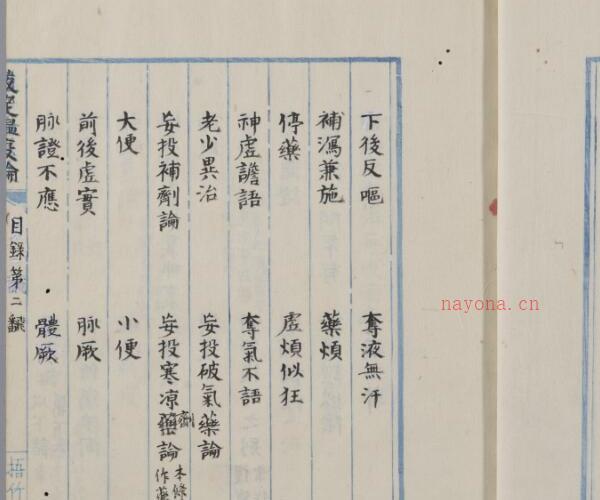 下後反嘔　奪液無汗
補瀉兼施　藥煩
停藥　虛煩似狂
神虛譫語　奪氣不語
老少異治　妄投破氣藥論
妄投補劑論　妄投寒凉藥論
劑
本條
作藥
大便　小便
前後虛實　脉厥
脉證不應　體厥
瘟疫論　目錄第二　梧竹
nayona.cn